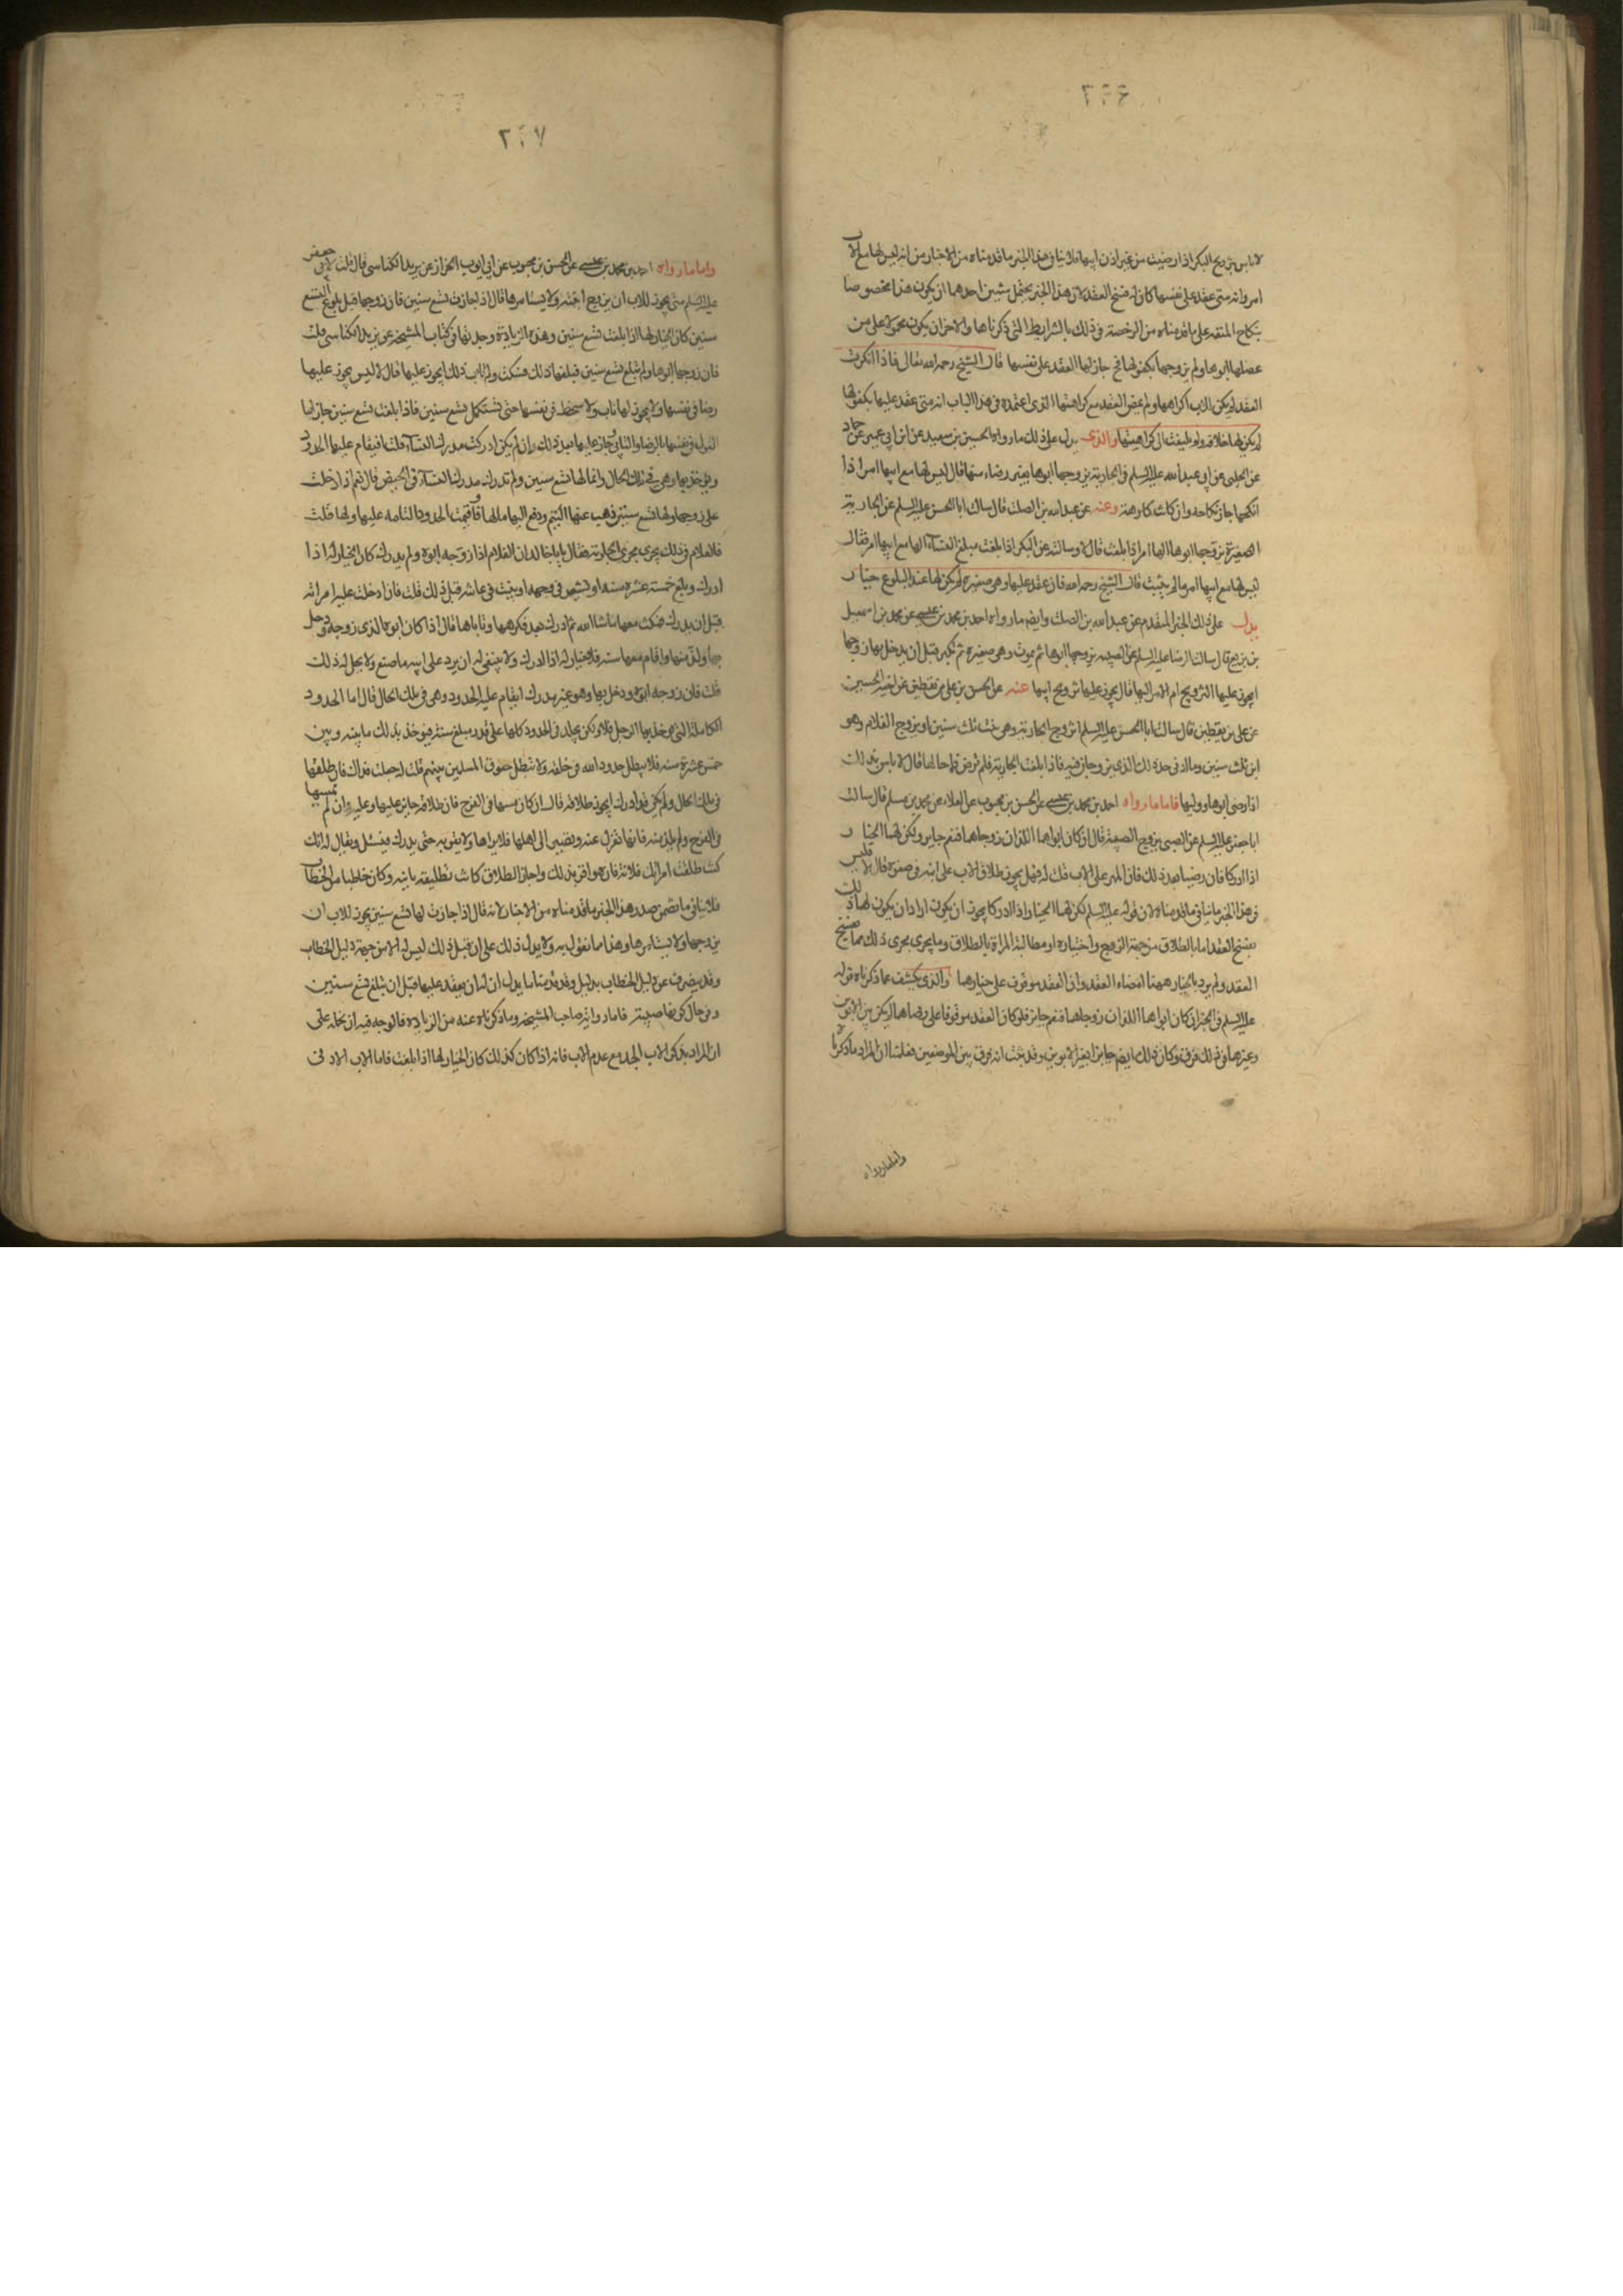 ٣٠٦
لا باس بتزويج البكر اذا رضيت من غير اذن ابيها فلا ينافي هذا الخبر ما قدمناه من الاخبار من انه ليس لها مع الاب
امر وانه متى عقد على نفسها كان له فسخ العقد لان هذا الخبر يحتمل شيئين احدهما ان يكون هذا مخصوصا
بنكاح المتعه على ما قدمناه من الرخصة في ذلك بالشرايط التي ذكرناها والاخر ان يكون محمولا على من
عضلها ابوها ولم يزوجها بكفو لها فح جاز لها العقد على نفسها قال الشيخ رحمه الله تعالى فاذا انكرت
العقد لم يكن للاب اكراهها ولم يمض العقد مع كراهتها الذي اعتمده في هذا الباب انه متى عقد عليها بكفو لها
لم يكن لها خلافه ولم يلتفت الى كراهيتها والذي يدل على ذلك ما رواه الحسين بن سعيد عن ابن ابي عمير عن حماد
عن الحلبي عن ابي عبد الله عليه السلم في الجارية يزوجها ابوها بغير رضاء منها قال ليس لها مع ابيها امر اذا
انكحها جاز نكاحه وان كانت كارهة وعنه عن عبد الله بن الصلت قال سالت ابا الحسن عليه السلم عن الجارية
الصغيرة يزوجها ابوها الها امر اذا بلغت قال لا وسالته عن البكر اذا بلغت مبلغ النساء الها مع ابيها امر فقال
ليس لها مع ابيها امر ما لم يثيت قال الشيخ رحمه الله فان عقد عليها وهي صغيره لم يكن لها عند البلوغ خيار
يدل على ذلك الخبر المتقدم عن عبد الله بن الصلت وايضا ما رواه احمد بن محمد بن عيسى عن محمد بن اسمعيل
بن بزيع قال سالت الرضا عليه السلم عن الصبيه يزوجها ابوها ثم يموت وهي صغيره ثم تكبر قبل ان يدخل بها زوجها
ايجوز عليها التزويج ام الامر اليها قال يجوز عليها تزويج ابيها عنه عن الحسن بن علي بن يقطين عن اخيه الحسين
عن علي بن يقطين قال سالت ابا الحسن عليه السلم اتزوج الجارية وهي بنت ثلث سنين او يزوج الغلام وهو
ابن ثلث سنين وما ادنى حد ذلك الذي يزوجان فيه فاذا بلغت الجارية فلم ترض فما حالها قال لا باس بذلك
اذا رضي ابوها ووليها فاما ما رواه احمد بن محمد بن عيسى عن الحسن بن محبوب عن العلاء عن محمد بن مسلم قال سالت
ابا جعفر عليه السلم عن الصبي يزوج الصبية قال ان كان ابواهما اللذان زوجاهما فنعم جايز ولكن لهما الخيار
اذا ادركا فان رضيا بعد ذلك فان المهر على الاب قلت له فهل يجوز طلاق الاب على ابنه في صغره قال لا فليس
في هذا الخبر ما ينافي ما قدمناه لان قوله عليه السلم لكن لهما الخيار اذا ادركا يجوز ان يكون اراد ان يكون لهما ذلك
بفسخ العقد اما بالطلاق من جهة الزوج واختياره او مطالبة المراة بالطلاق وما يجرى مجرى ذلك مما يفسخ
العقد ولم يرد بالخيار ههنا امضاء العقد وان العقد موقوف على خيارهما والذي يكشف عما ذكرناه قوله
عليه السلم في الخبر ان كان ابواهما اللذان زوجاهما فنعم جايز فلو كان العقد موقوفا على رضاهما لم يكن بين الابوين
وغيرهما في ذلك فرق وكان ذلك ايضا جايزا لغير الابوين وقد ثبت انه فرق بين الموضعين فعلمنا ان المراد ما ذكرناه
واما ما رواه
٣٠٧
واما ما رواه احمد بن محمد بن عيسى عن الحسن بن محبوب عن ابي ايوب الخزاز عن بريد الكناسي قال قلت لابي جعفر
عليه السلم متى يجوز للاب ان يزوج ابنته ولا يستامرها قال اذا جازت تسع سنين فان زوجها قبل بلوغ التسع
سنين كان الخيار لها اذا بلغت تسع سنين وهذه الزيادة وجدتها في كتاب المشيخه عن بريد الكناسي قلت
فان زوجها ابوها ولم تبلغ تسع سنين فبلغها ذلك فسكتت ولم تاب ذلك ايجوز عليها قال لا ليس يجوز عليها
رضا في نفسها ولا يجوز لها تاب ولا سخط في نفسها حتى تستكمل تسع سنين فاذا بلغت تسع سنين جاز لها
القول في نفسها بالرضا والتابي وجاز عليها بعد ذلك وان لم يكن ادركت مدرك النساء قلت افيقام عليها الحدود
ويؤخذ بها وهي في تلك الحال وانما لها تسع سنين ولم تدرك مدرك النساء في الحيض قال نعم اذا دخلت
على زوجها ولها تسع سنين ذهب عنها اليتم ودفع اليها مالها واقيمت الحدود التامه عليها ولها قلت
فالغلام في ذلك يجرى مجرى الجارية فقال يا با خالد ان الغلام اذا زوجه ابوه ولم يدرك كان الخيار له اذا
ادرك وبلغ خمسة عشره سنه او يشعر في وجهه او ينبت في عانته قبل ذلك قلت فان ادخلت عليه امراته
قبل ان يدرك فمكث معها ما شاء الله ثم ادرك بعد فكرهها وتاباها قال اذا كان ابوه الذي زوجه ودخل
بها ولذ منها واقام معها سنه فلا خيار له اذا ادرك ولا ينبغي له ان يرد على ابيه ما صنع ولا يحل له ذلك
قلت فان زوجه ابوه ودخل بها وهو غير مدرك ايقام عليه الحدود وهي في تلك الحال قال اما الحدود
الكاملة التي يؤخذ بها الرجل فلا ولكن يجلد في الحدود كلها على قدر مبلغ سنه فيؤخذ بذلك ما بينه وبين
خمس عشرة سنه فلا يبطل حدود الله في خلقه ولا تبطل حقوق المسلمين بينهم قلت له جعلت فداك فان طلقها
في تلك الحال ولم يكن قد ادرك ايجوز طلاقه قال ان كان مسها في الفرج فان طلاقه جايز عليها وعليه وان لم يمسها
في الفرج ولم يلذ منه فانها تعزل عنه وتصير الى اهلها فلا يراها ولا تقربه حتى يدرك فيسئل ويقال له انك
كنت طلقت امراتك فلانة فان هو اقر بذلك واجاز الطلاق كانت تطليقه باينه وكان خاطبا من الخطاب
فلا ينافي ما تضمن صدر هذا الخبر ما قدمناه من الاخبار لانه قال اذا جازت لها تسع سنين يجوز للاب ان
يزوجها ولا يستامرها وهذا مما نقول به ولا يدل ذلك على ان قبل ذلك ليس له الا من جهة دليل الخطاب
وقد ينصرف عن دليل الخطاب بدليل وقد قدمنا ما يدل ان له ان يعقد عليها قبل ان تبلغ تسع سنين
وفي حال كونها صبية فاما رواية صاحب المشيخه وما ذكرناه عنه من الزياده فالوجه فيه ان نحمله على
ان المراد بذكر الاب الجد مع عدم الاب فانه اذا كان كذلك كان الخيار لها اذا بلغت فاما الاب الادنى